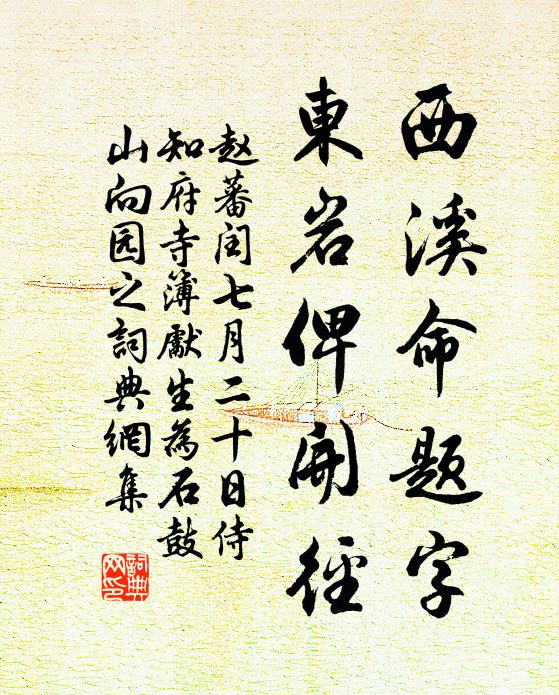 西溪命题字
東岩俾開徑
赵蕃闰七月二十日侍
知府寺簿獻生為石鼓
山向园之詞典網集
詞典
网印